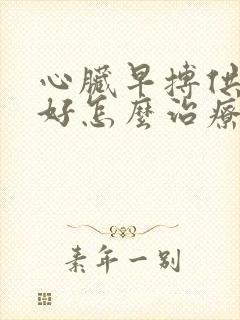 心臟早搏供
好怎麼治療
素年一别